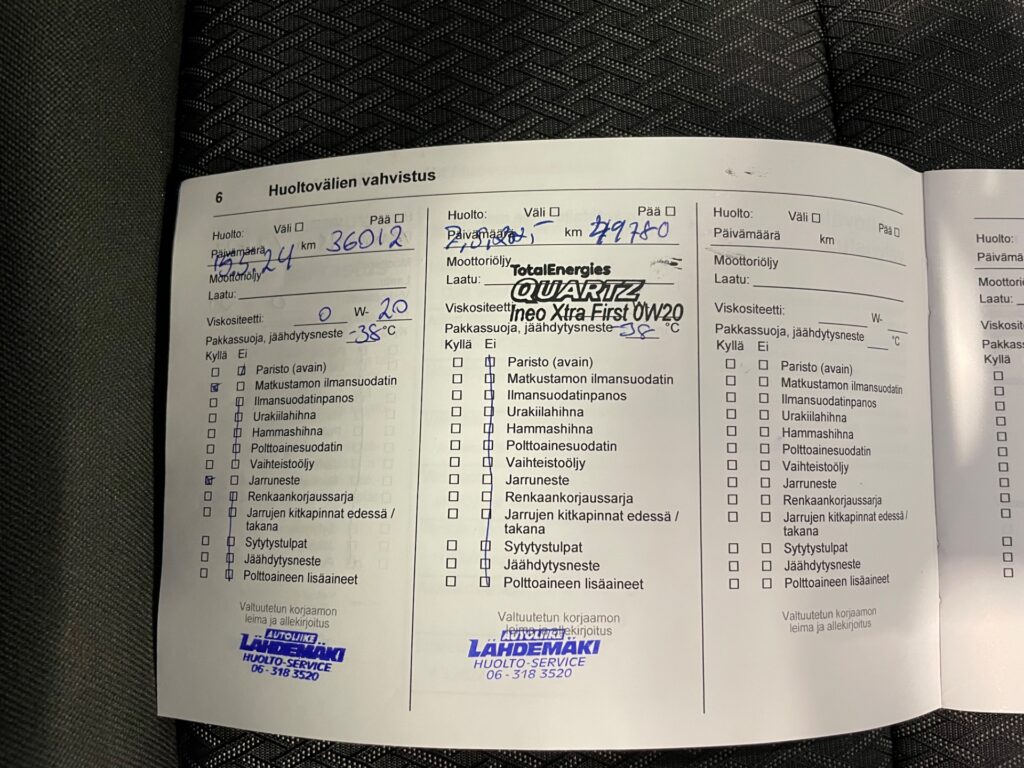 6 Huoltovälien vahvistus
Huolto: Väli Pää
Päivämäärä km 36012
15.5.24
Moottoriöljy
Laatu:
Viskositeetti: 0 W- 20
Pakkassuoja, jäähdytysneste -38 °C
Kyllä Ei
Paristo (avain)
Matkustamon ilmansuodatin
Ilmansuodatinpanos
Urakiilahihna
Hammashihna
Polttoainesuodatin
Vaihteistoöljy
Jarruneste
Renkaankorjaussarja
Jarrujen kitkapinnat edessä /
takana
Sytytystulpat
Jäähdytysneste
Polttoaineen lisäaineet
Valtuutetun korjaamon
leima ja allekirjoitus
AUTOLIIKE
LÄHDEMÄKI
HUOLTO-SERVICE
06 - 318 3520
Huolto: Väli Pää
Päivämäärä km 49780
Moottoriöljy
TotalEnergies
Laatu: QUARTZ
Ineo Xtra First 0W20
Viskositeetti:
Pakkassuoja, jäähdytysneste -38 °C
Kyllä Ei
Paristo (avain)
Matkustamon ilmansuodatin
Ilmansuodatinpanos
Urakiilahihna
Hammashihna
Polttoainesuodatin
Vaihteistoöljy
Jarruneste
Renkaankorjaussarja
Jarrujen kitkapinnat edessä /
takana
Sytytystulpat
Jäähdytysneste
Polttoaineen lisäaineet
Valtuutetun korjaamon
leima ja allekirjoitus
AUTOLIIKE
LÄHDEMÄKI
HUOLTO-SERVICE
06 - 318 3520
Huolto: Väli Pää
Päivämäärä km
Moottoriöljy
Laatu:
Viskositeetti: W-
Pakkassuoja, jäähdytysneste °C
Kyllä Ei
Paristo (avain)
Matkustamon ilmansuodatin
Ilmansuodatinpanos
Urakiilahihna
Hammashihna
Polttoainesuodatin
Vaihteistoöljy
Jarruneste
Renkaankorjaussarja
Jarrujen kitkapinnat edessä /
takana
Sytytystulpat
Jäähdytysneste
Polttoaineen lisäaineet
Valtuutetun korjaamon
leima ja allekirjoitus
Huolto:
Päivämä
Moottori
Laatu:
Viskosit
Pakkass
Kyllä